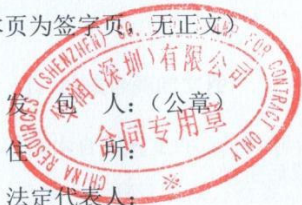 本页为签字页，无正文）
发 包 人：（公章）
住 所：
法定代表人：
CHINA RESOURCES (SHENZHEN) CO. FOR CONTRACT ONLY
华润(深圳)有限公司
合同专用章